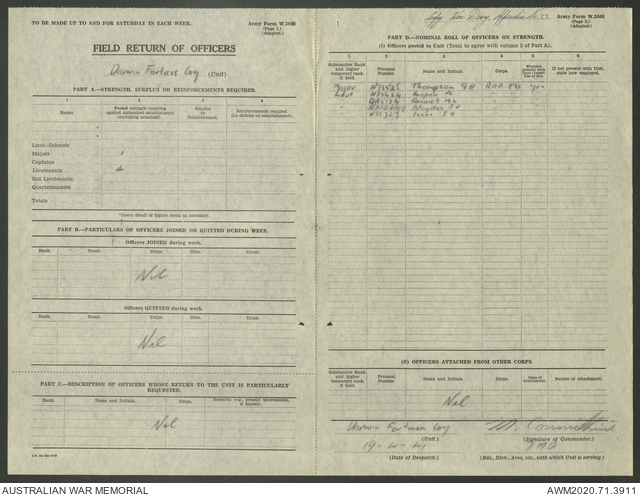 TO BE MADE UP TO AND FOR SATURDAY IN EACH WEEK.
Army Form W.3008
(Page 1.)
(Adapted.)
FIELD RETURN OF OFFICERS
Darwin Fortress Coy (Unit)
PART A—STRENGTH, SURPLUS OR REINFORCEMENTS REQUIRED.
1 2 3 4
Ranks Posted strength counting against authorised establishment (excluding attached). Surplus to Establishment. Reinforcements required (i.e. deficits on establishment).
Lieut.-Colonels
Majors
Captains
Lieutenants
2nd Lieutenants
Quartermasters
Totals
*Insert detail of higher ranks as necessary.
PART B—PARTICULARS OF OFFICERS JOINED OR QUITTED DURING WEEK.
Officers JOINED during week.
Rank. Name. Corps. Date. Cause.
Nil
Officers QUITTED during week.
Rank. Name. Corps. Date. Cause.
Nil
PART C—DESCRIPTION OF OFFICERS WHOSE RETURN TO THE UNIT IS PARTICULARLY REQUESTED.
Rank. Name and Initials. Corps. Remarks (e.g., present whereabouts, if known)
Nil
War Diary
Army Form W.3008
(Page 2.)
(Adapted.)
PART D—NOMINAL ROLL OF OFFICERS ON STRENGTH.
(I) Officers posted to Unit (Total to agree with column 2 of Part A).
1 2 3 4 5 6
Substantive Rank and higher temporary rank, if held Personal Number. Name and Initials. Corps. Whether present with Unit (insert Yes or No). If not present with Unit, state how employed.
Major Thompson Yes
(II) OFFICERS ATTACHED FROM OTHER CORPS.
Substantive Rank, and higher temporary rank, if held Personal Number. Name and Initials. Corps. Date of Attachment. Nature of attachment.
Nil
Darwin Fortress Coy
(Unit.) (Signature of Commander.)
19-4-41 7MD
(Date of Despatch.) (Bde., Divn., Area, etc., with which Unit is serving.)
AUSTRALIAN WAR MEMORIAL
AWM2020.71.3911